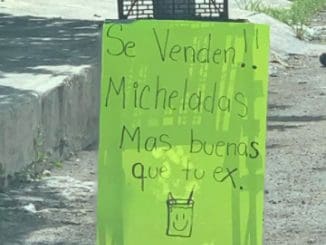 Se Venden!!
Micheladas
Mas buenas
que tu ex.